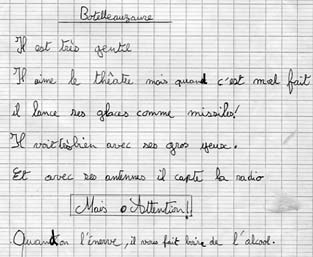 Botelleauzaure
Il est très gentil
Il aime le théâtre mais quand c'est mal fait
il lance ses glaces comme missiles!
Il voit très bien avec ses gros yeux.
Et avec ses antennes il capte la radio
Mais Attention!
Quand on l'énerve, il vous fait boire de l'alcool.